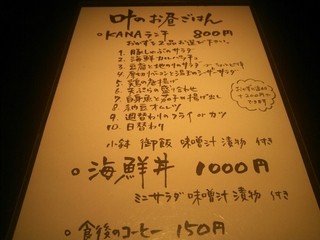 叶のお昼ごはん
○KANAランチ 800円
おかずを2品お選び下さい。
1. 豚しゃぶのサラダ
2. 海鮮カルパッチョ
3. 豆腐と地のりのサラダ
4. 厚切りベーコンと温玉のシーザーサラダ
5. 鶏の唐揚げ
6. 天ぷら盛り合わせ
7. 白身魚と茄子の揚げ出し
8. 納豆オムレツ
9. 週替わりのフライ or カツ
10. 日替わり
小鉢 御飯 味噌汁 漬物 付き
○海鮮丼 1000円
ミニサラダ 味噌汁 漬物 付き
○食後のコーヒー 150円